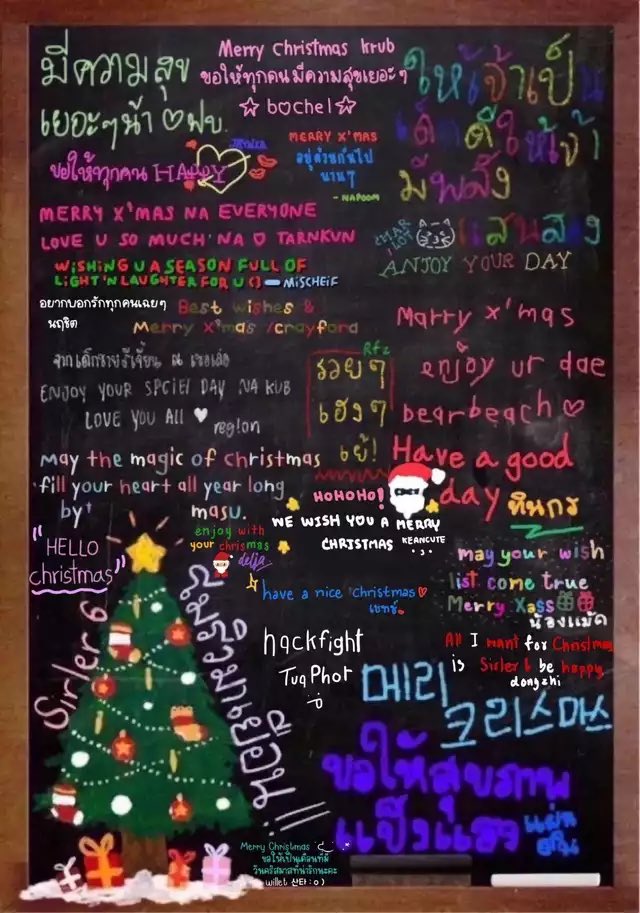 มีความสุข
เยอะๆน้า ♡ ฝบ.
Merry Christmas krub
ขอให้ทุกคนมีความสุขเยอะๆ
☆ bochel ☆
ให้เจ้าเป็น
เด็กดีให้เจ้า
มีพลัง
MERRY X'MAS
อยู่ด้วยกันไป
นานๆ
- NAPOOM
ขอให้ทุกคน HAPPY
MERRY X'MAS NA EVERYONE
LOVE U SO MUCH NA ♡ TARNKUN
ANJOY YOUR DAY
WiSHiNG U A SEASON FULL OF
LiGHT 'N LAUGHTER FOR U () — MiSCHEiF
อยากบอกรักทุกคนเฉยๆ
นฤชิต
Best wishes &
Merry x'mas /crayford
Marry x'mas
enjoy ur dae
bearbeach ♡
Rfz
รวยๆ
เฮงๆ
เย้!
ENJOY YOUR SPCIEl DAY NA KUB
LOVE YOU All ♥
reg!on
May the magic of christmas
fill your heart all year long
by masu.
Have a good
day ทินกร
HOHOHO!
WE WISH YOU A MERRY
CHRISTMAS KEANCUTE
enjoy with
your chrismas
delja
"HELLO
christmas"
may your wish
list come true
Merry Xass
น้องแม็ค
have a nice Christmas ♡
เชทช์
hackfight
TuaPhot
All I want for Christmas
is Sirler6 be happy
dongzhi
Sirler 6
สุมรัวมานย้อน!!!
메리
크리스마스
ขอให้สุขภาพ
แข็งแรง
Merry Christmas
ขอให้เป็นเดือนที่มี
วันคริสมาสที่น่ารักนะคะ
willet 산타 :o)